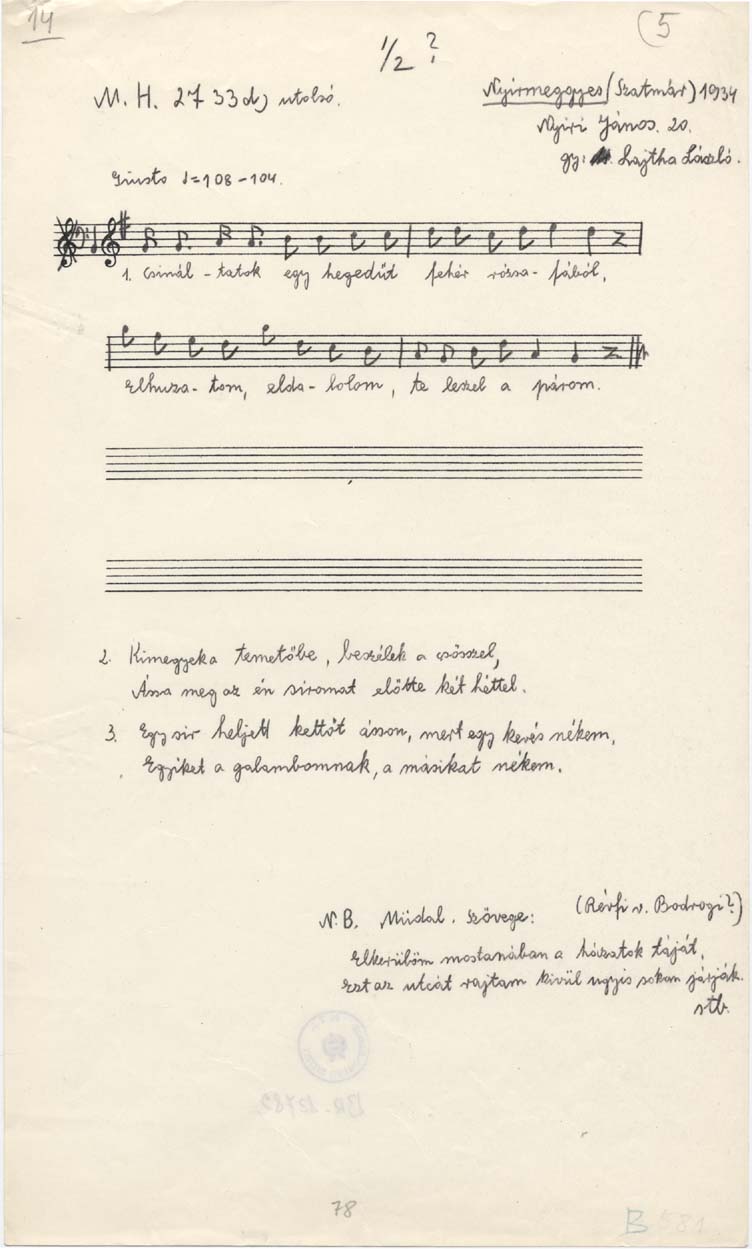 14
(5
1/2 ?
M. H. 2733d) utolsó.
Nyirmeggyes (Szatmár) 1934
Nyiri János. 20.
gy: Lajtha László.
Giusto ♩=108-104.
1. Csinál-tatok egy hegedűt fehér rózsa-fából,
Elhuza-tom, elda-lolom, te leszel a párom.
2. Kimegyek a temetőbe, beszélek a csősszel,
Ássa meg az én siromat előtte két héttel.
3. Egy sir heljett kettőt ásson, mert egy kevés nékem,
Egyiket a galambomnak, a másikat nékem.
N.B. Müdal. Szövege: (Rérfi v. Bodrogi?)
Elkerülöm mostanában a házatok táját,
Ezt az utcát rajtam kivül ugyis sokan járják.
stb.
78
B 581